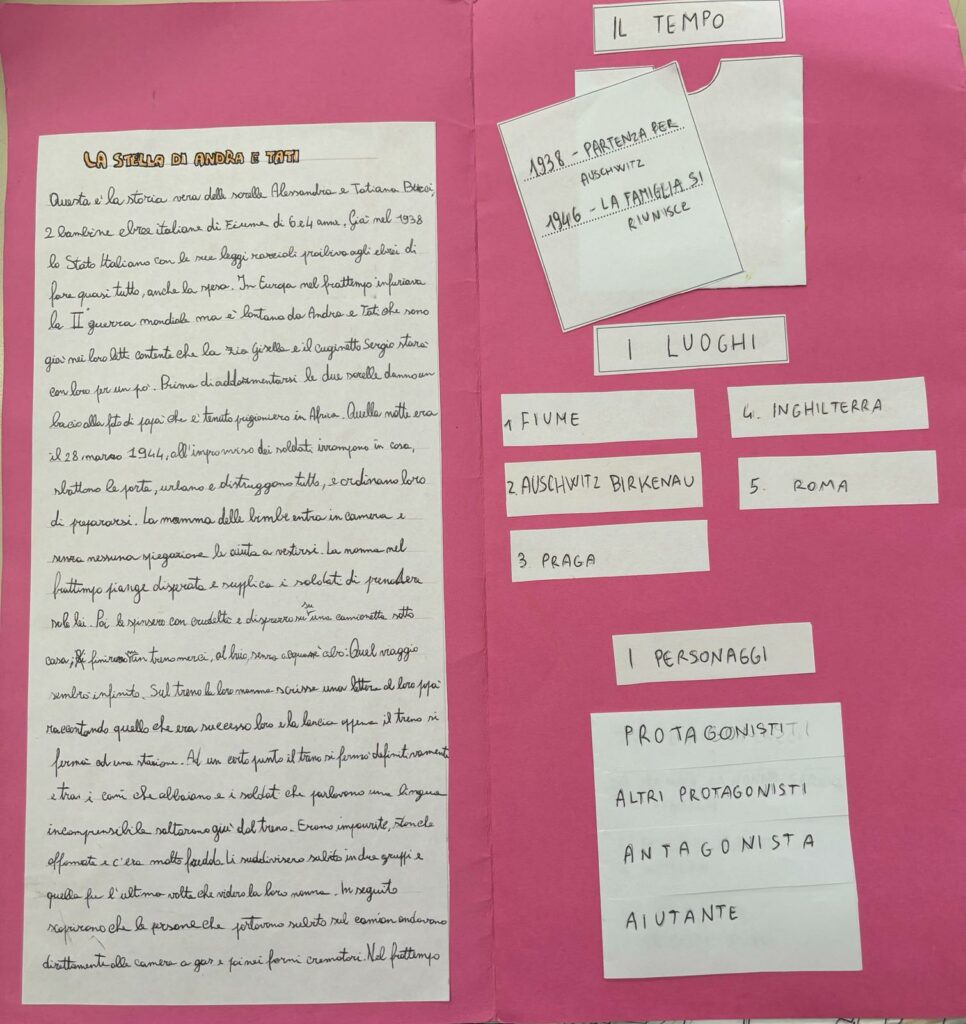 LA STELLA DI ANDRA E TATI
Questa è la storia vera delle sorelle Alessandra e Tatiana Bucci,
2 bambine ebree italiane di Fiume di 6 e 4 anni. Già nel 1938
lo Stato Italiano con le sue leggi razziali proibiva agli ebrei di
fare quasi tutto, anche la spesa. In Europa nel frattempo infuriava
la II guerra mondiale ma è lontana da Andra e Tati che sono
già nei loro letti contente che la zia Gisella e il cuginetto Sergio starà
con loro per un po'. Prima di addormentarsi le due sorelle danno un
bacio alla foto di papà che è tenuto prigioniero in Africa. Quella notte era
il 28 marzo 1944, all'improvviso dei soldati irrompono in casa,
sbattono le porte, urlano e distruggono tutto, e ordinano loro
di prepararsi. La mamma delle bimbe entra in camera e
senza nessuna spiegazione le aiuta a vestirsi. La nonna nel
frattempo piange disperata e supplica i soldati di prendere
solo lei. Poi le spinsero con crudeltà e disprezzo su una camionetta sotto
casa, finirono in treno merci, al buio, senza acqua e cibo. Quel viaggio
sembrò infinito. Sul treno la loro mamma scrisse una lettera al loro papà
raccontando quello che era successo loro e la lascia appena il treno si
fermò ad una stazione. Ad un certo punto il treno si fermò definitivamente
e tra i cani che abbaiano e i soldati che parlavano una lingua
incomprensibile saltarono giù dal treno. Erano impaurite, stanche
affamate e c'era molto freddo. Li suddivisero subito in due gruppi e
quella fu l'ultima volta che videro la loro nonna. In seguito
scoprirono che le persone che portavano subito sul camion andavano
direttamente alle camere a gas e poi nei forni crematori. Nel frattempo
IL TEMPO
1938 - PARTENZA PER
AUSCHWITZ
1946 - LA FAMIGLIA SI
RIUNISCE
I LUOGHI
1 FIUME
2. AUSCHWITZ BIRKENAU
3 PRAGA
4. INGHILTERRA
5. ROMA
I PERSONAGGI
PROTAGONISTI
ALTRI PROTAGONISTI
ANTAGONISTA
AIUTANTE